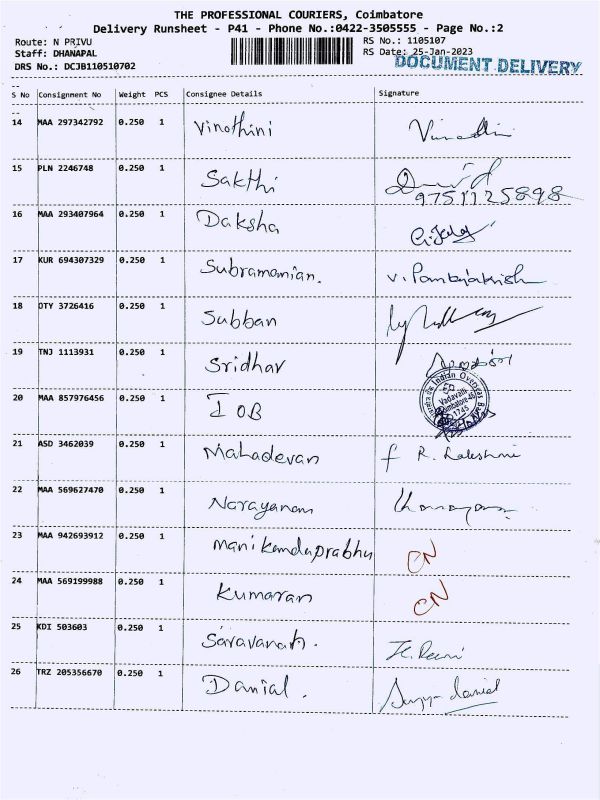 THE PROFESSIONAL COURIERS, Coimbatore
Delivery Runsheet - P41 - Phone No.:0422-3505555 - Page No.:2
Route: N PRIVU
RS No.: 1105107
Staff: DHANAPAL
RS Date: 25-Jan-2023
DRS No.: DCJB110510702
DOCUMENT DELIVERY
S No Consignment No Weight PCS Consignee Details Signature
14 MAA 297342792 0.250 1 Vinothini
15 PLN 2246748 0.250 1 Sakthi
9751125898
16 MAA 293407964 0.250 1 Daksha
17 KUR 694307329 0.250 1 Subramanian.
18 OTY 3726416 0.250 1 Subban
19 TNJ 1113931 0.250 1 Sridhar
20 MAA 857976456 0.250 1 IOB
Indian Overseas
Vadavalli
Coimbatore
1745
21 ASD 3462039 0.250 1 Mahadevan R. Lakshmi
22 MAA 569627470 0.250 1 Narayanan
23 MAA 942693912 0.250 1 Manikandaprabhu CN
24 MAA 569199988 0.250 1 Kumaran CN
25 KDI 503603 0.250 1 Saravanan.
26 TRZ 205356670 0.250 1 Danial. daniel